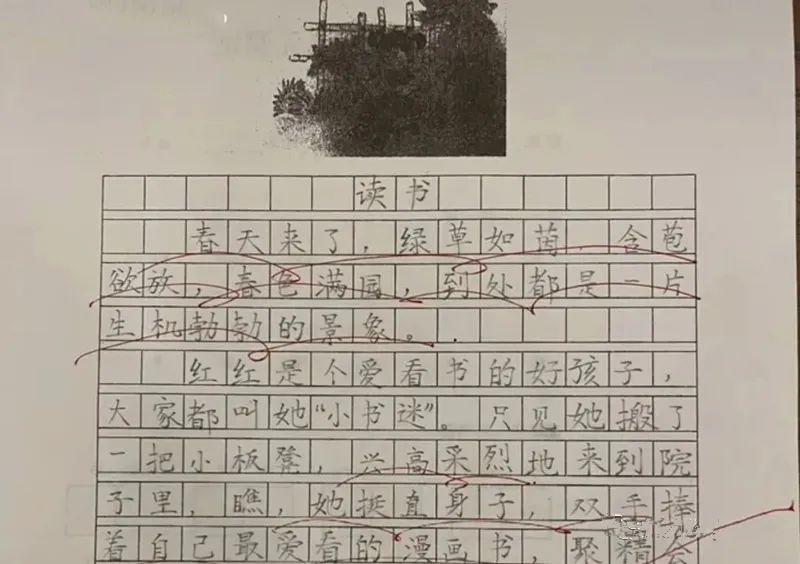 读书
春天来了，绿草如茵.含苞
欲放，春色满园，到处都是一片
生机勃勃的景象。
红红是个爱看书的好孩子，
大家都叫她“小书迷”。只见她搬了
一把小板凳，兴高采烈地来到院
子里，瞧，她挺直身子，双手捧
着自己最爱看的漫画书，聚精会